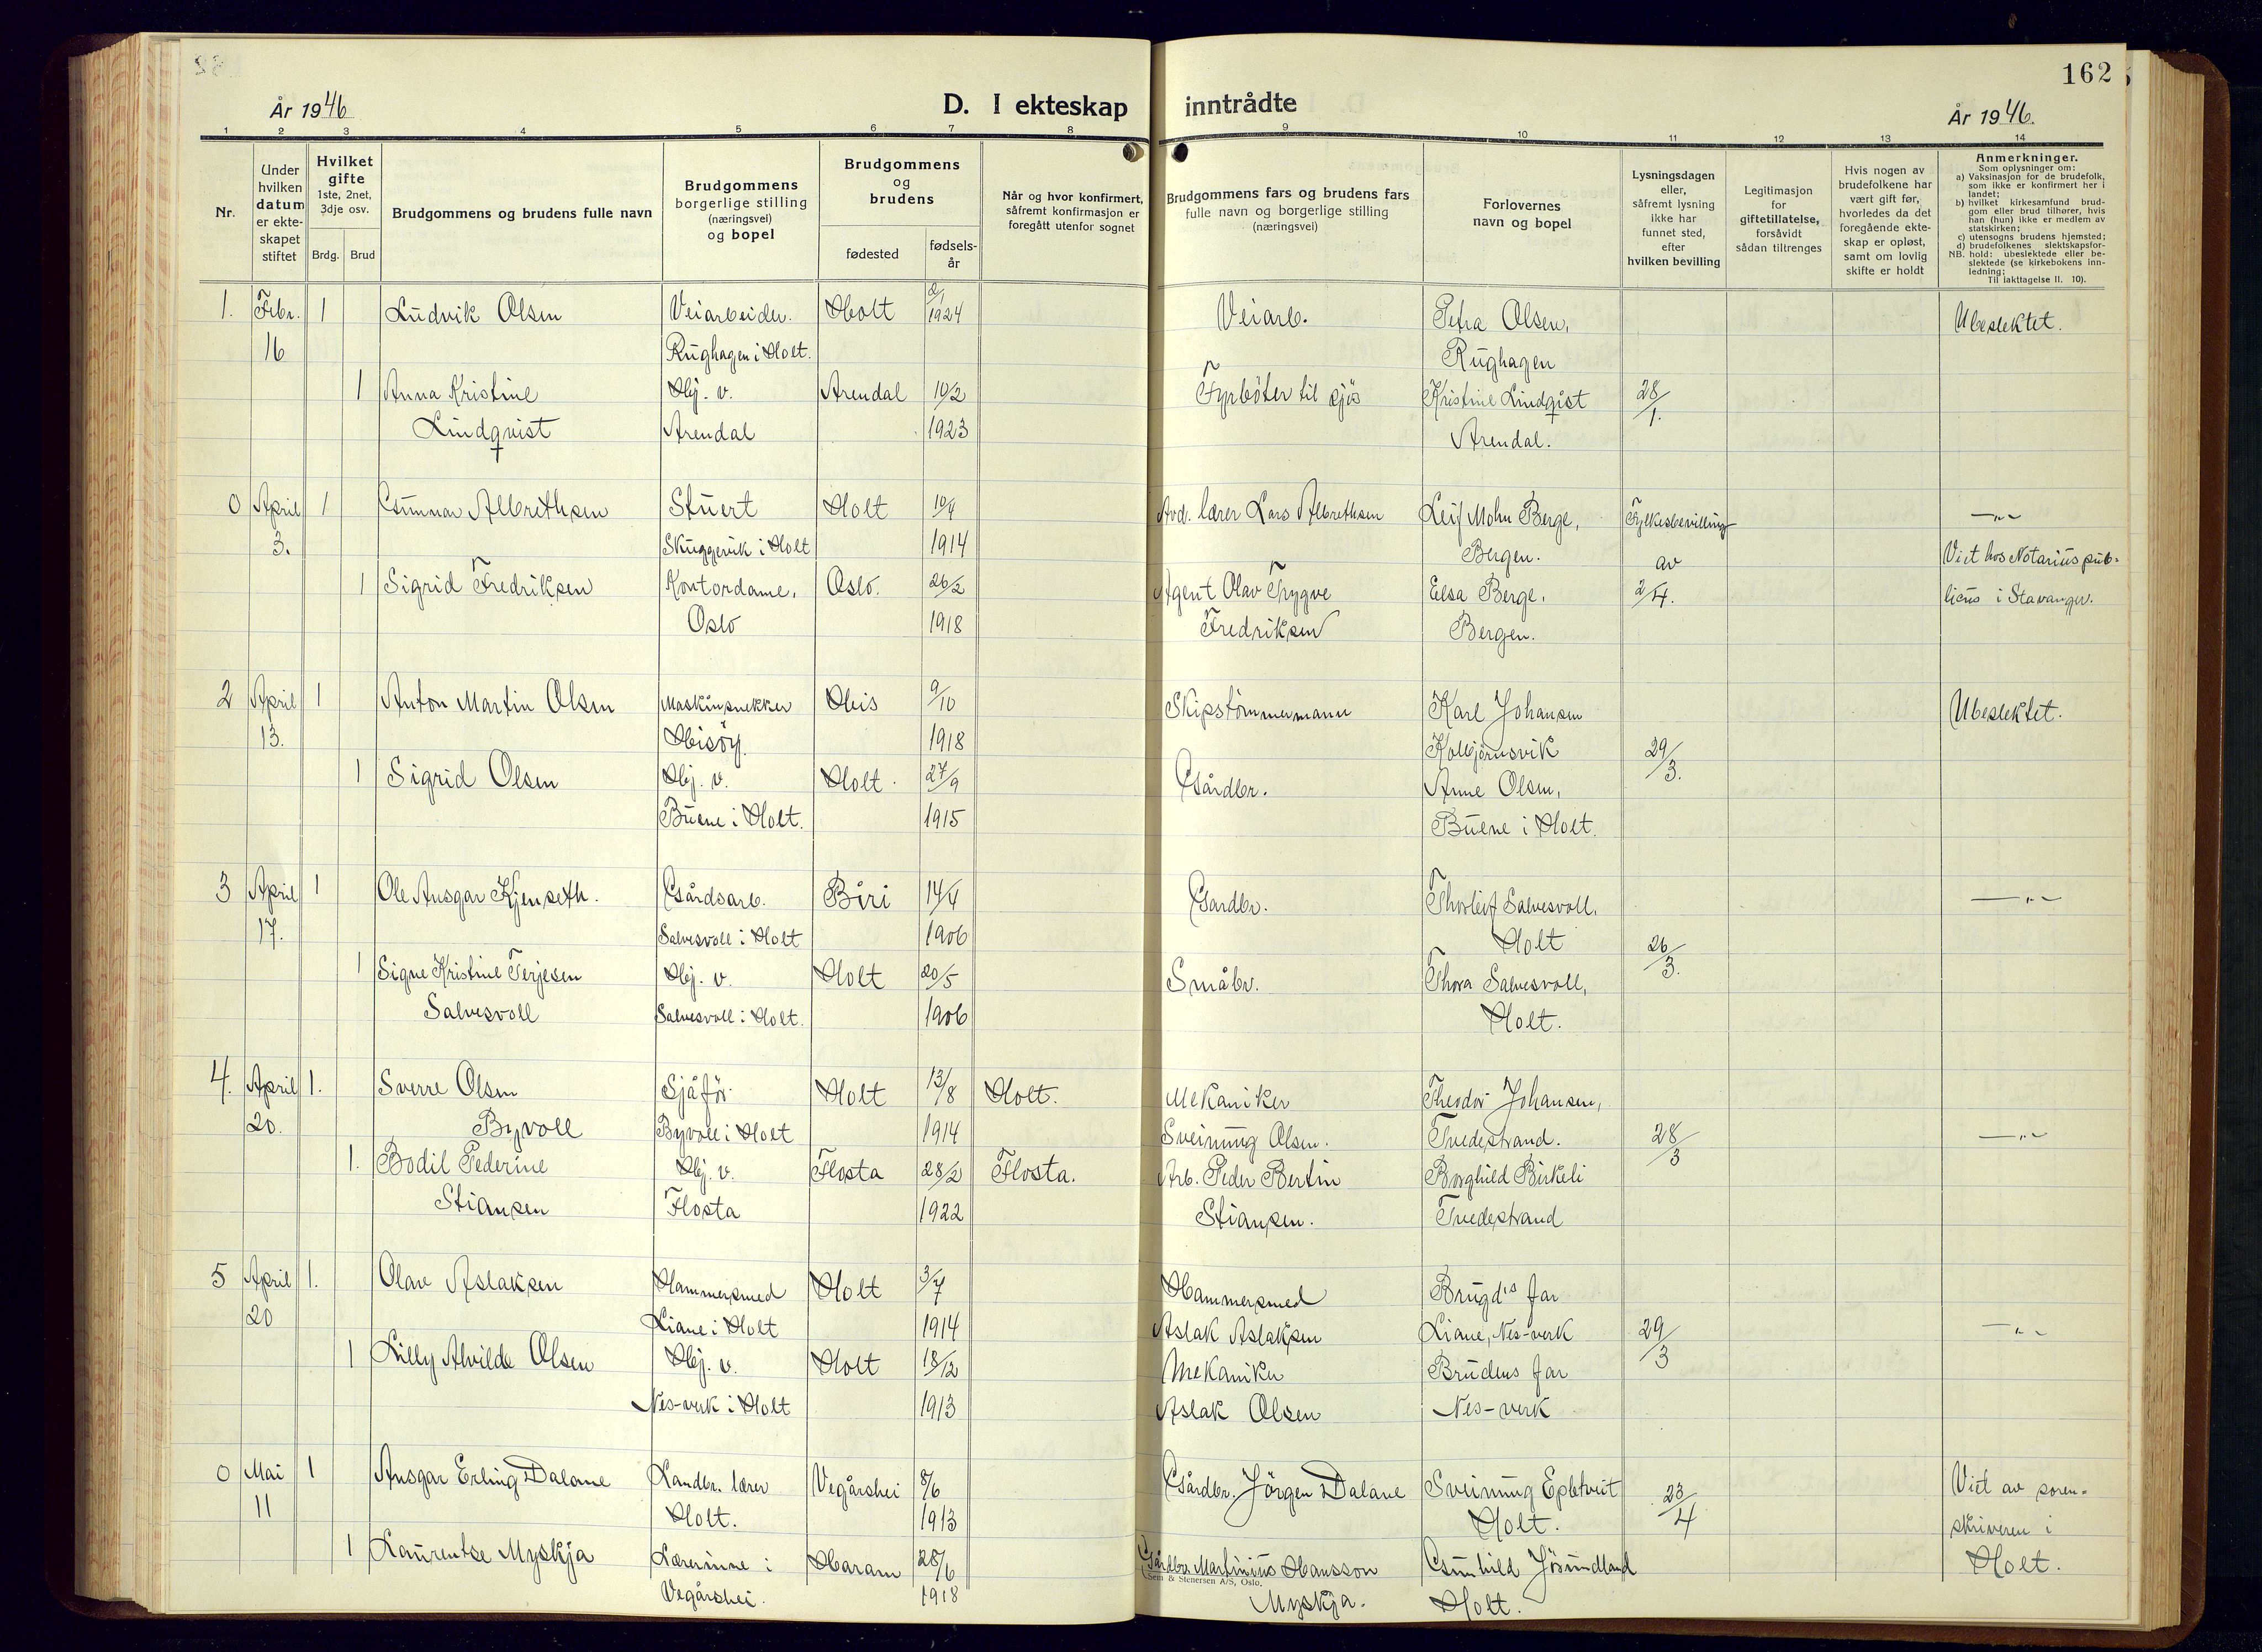 162
År 1946
D. I ekteskap inntrådte
År 1946.
1 2 3 4 5 6 7 8 9 10 11 12 13 14
Nr.
Under
hvilken
datum
er ekte-
skapet
stiftet
Hvilket
gifte
1ste, 2net,
3dje osv.
Brdg. Brud
Brudgommens og brudens fulle navn
Brudgommens
borgerlige stilling
(næringsvei)
og bopel
Brudgommens
og
brudens
fødested
fødsels-
år
Når og hvor konfirmert,
såfremt konfirmasjon er
foregått utenfor sognet
Brudgommens fars og brudens fars
fulle navn og borgerlige stilling
(næringsvei)
Forlovernes
navn og bopel
Lysningsdagen
eller,
såfremt lysning
ikke har
funnet sted,
efter
hvilken bevilling
Legitimasjon
for
giftetillatelse,
forsåvidt
sådan tiltrenges
Hvis nogen av
brudefolkene har
vært gift før,
hvorledes da det
foregående ekte-
skap er opløst,
samt om lovlig
skifte er holdt
Anmerkninger.
Som oplysninger om:
a) Vaksinasjon for de brudefolk,
som ikke er konfirmert her i
landet;
b) hvilket kirkesamfund brud-
gom eller brud tilhører, hvis
han (hun) ikke er medlem av
statskirken;
c) utensogns brudens hjemsted;
d) brudefolkenes slektskapsfor-
NB. hold: ubeslektede eller be-
slektede (se kirkebokens inn-
ledning;
Til iakttagelse II. 10).
1. Febr. 1 Ludvik Olsen Veiarbeider. Holt 2/1 1924 Veiarb. Petra Olsen, Ubeslektet.
16 Rughagen i Holt. Rughagen
1 Anna Kristine Hj. v. Arendal 10/2 Fyrbøter til sjøs Kristine Lindqist 28/1.
Lindqvist Arendal 1923 Arendal.
0 April 1 Gunnar Albrethsen Stuert Holt 10/4 Avd. lærer Lars Albrethsen Leif Mohn Berge, Fylkesbevilling —„—
3. Skuggevik i Holt 1914 Bergen. av Viet hos Notarius pub-
1 Sigrid Fredriksen Kontordame, Oslo. 26/2 Agent Olav Trygve Elsa Berge, 2/4. licus i Stavanger.
Oslo 1918 Fredriksen Bergen.
2 April 1 Anton Martin Olsen Maskinsnekker His 9/10 Skipstømmermann Karl Johansen Ubeslektet.
13. Hisöy. 1918 Kolbjörnsvik 29/3.
1 Sigrid Olsen Hj. v. Holt 27/9 Gårdbr. Anne Olsen,
Buene i Holt. 1915 Buene i Holt.
3 April 1 Ole Ansgar Kjenseth. Gårdsarb. Biri 14/4 Gardbr. Thorleif Salvesvoll, —„—
17. Salvesvoll i Holt 1906 Holt 26/3.
1 Signe Kristine Terjesen Hj. v. Holt 20/5 Småbr. Thora Salvesvoll,
Salvesvoll Salvesvoll i Holt. 1906 Holt.
4. April 1. Sverre Olsen Sjåför Holt 13/8 Holt. Mekaniker Theodor Johansen,
20. Byvoll Byvoll i Holt 1914 Sveinung Olsen. Tvedestrand. 28/3 —„—
1. Bodil Pederine Hj. v. Flosta 28/2 Flosta. Arb. Peder Bertin Borghild Birkeli
Stiansen Flosta 1922 Stiansen. Tvedestrand
5 April 1. Olav Aslaksen Hammersmed Holt 3/7 Hammersmed Brugds far
20 Liane i Holt 1914 Aslak Aslaksen Liane, Nes-verk 29/3 —„—
1 Lilly Alvilde Olsen Hj. v. Holt 18/12 Mekaniker Brudens far
Nes-verk i Holt 1913 Aslak Olsen Nes-verk
0 Mai 1 Ansgar Erling Dalane Landbr. lærer Vegårshei 8/6 Gårdbr. Jörgen Dalane Sveinung Epletveit 23/4 Viet av soren-
11 Holt. 1913 Holt. skriveren i
1 Laurentse Myskja Lærerinne i Haram 28/6 Gårdbr. Martinius Hansson Gunhild Jörundland Holt.
Vegårshei. 1918 Myskja. Holt.
Sem & Stenersen A/S, Oslo.